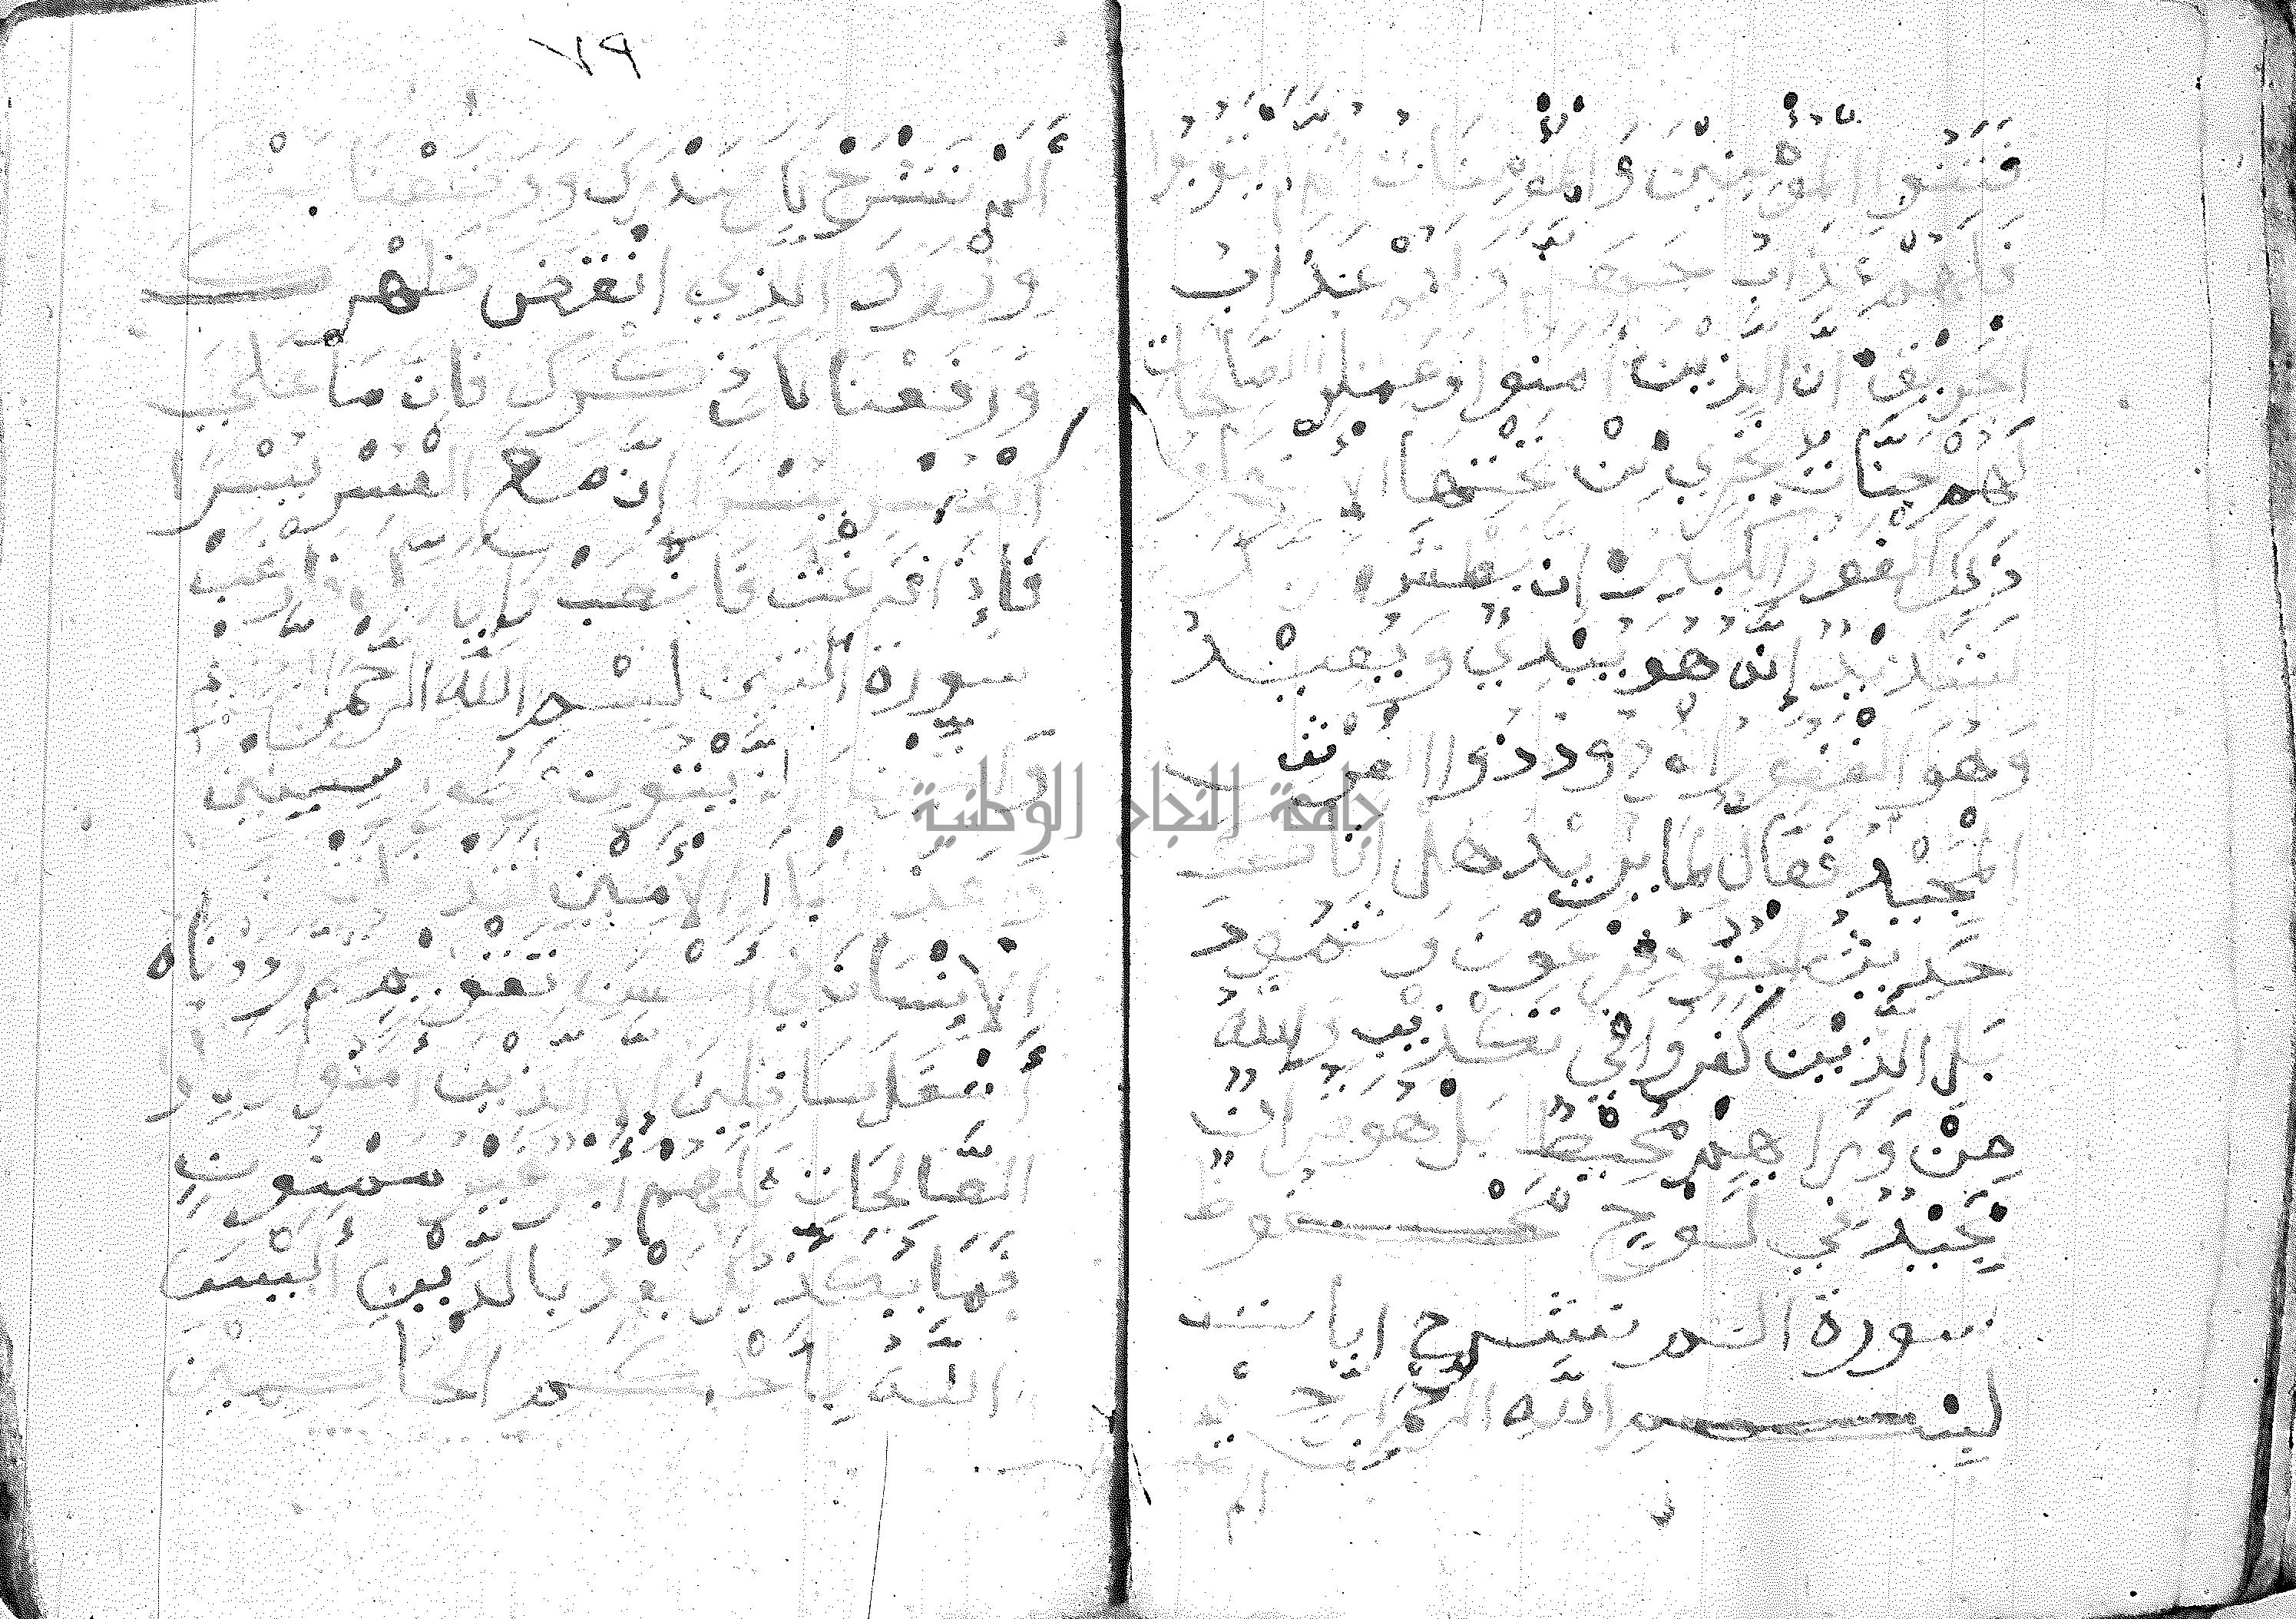 فتنوا المؤمنين والمؤمنات ثم لم يتوبوا
فلهم عذاب جهنم ولهم عذاب
الحريق ان الذين امنوا وعملو الصالحات
لهم جنات تجري من تحتها الانهار
ذلك الفوز الكبير ان بطش ربك
شديد إنه هو يبدي ويعيد
وهو الغفور الودود ذوا العرش
المجيد فعال لما يريد هل اتاك
حديث الجنود فرعون وثمود
بل الذين كفروا في تكذيب والله
من وراهم محيط بل هو قران
مجيد في لوح محفوظ
سورة الم نشرح ايات
بسم الله الرحمن الرحيم
الم
٧٩
ألم نشرح لك صدرك ووضعنا عنك
وزرك الذي انقض ظهرك
ورفعنا لك ذكرك فان مع
العسر يسرا إن مع العسر يسرا
فإذا فرغت فانصب وإلى ربك فارغب
سورة التين بسم الله الرحمن الرحيم
والتين والزيتون وطور سينين
وهذا البلد الأمين لقد خلقنا
الإنسان في أحسن تقويم ثم رددناه
أسفل سافلين إلا الذين امنوا وعملوا
الصالحات فلهم أجر غير ممنون
فما يكذبك بعد بالدين أليس
الله بأحكم الحاكمين
جامعة النجاح الوطنية